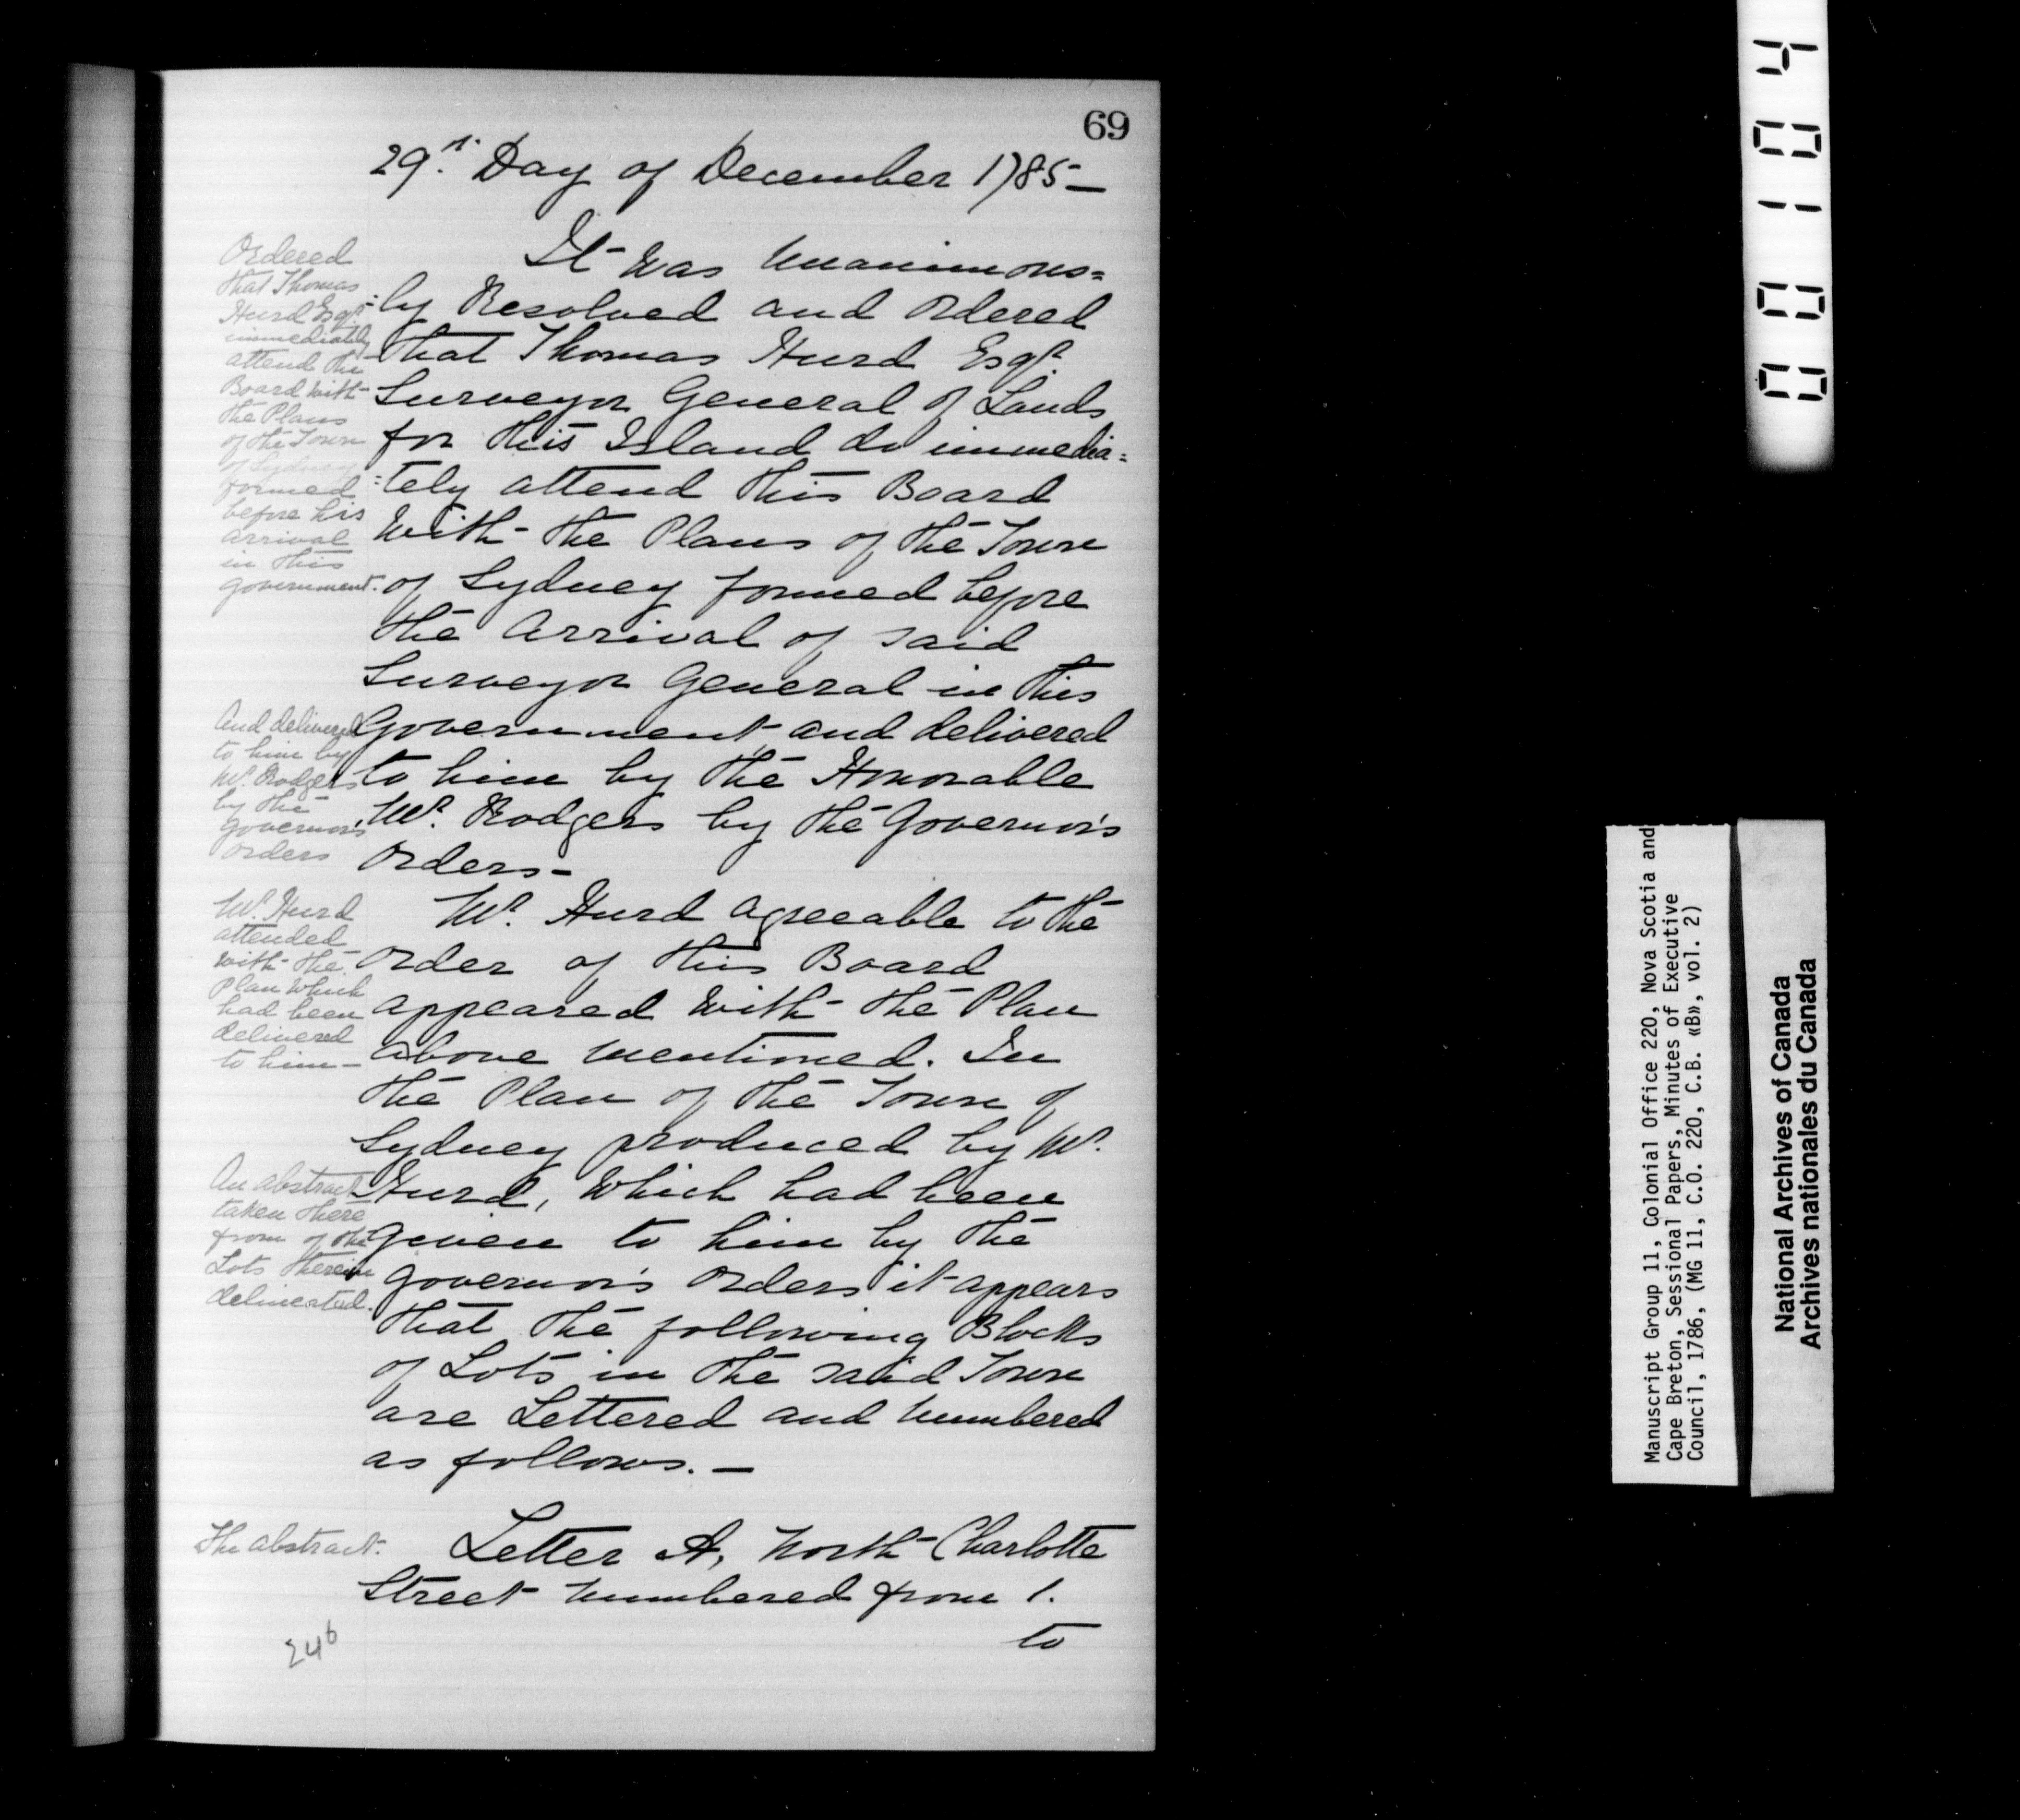 69
29th. Day of December 1785—
It was unanimous=
=ly Resolved and Ordered
that Thomas Hurd Esqr.
Surveyor General of Lands
for this Island do immedia=
=tely attend this Board
with the Plans of the Town
of Sydney formed before
the Arrival of said
Surveyor General in this
Government and delivered
to him by the Honorable
Mr. Rodgers by the Governor's
Orders—
Mr. Hurd agreeable to the
Order of this Board
appeared with the Plan
above mentioned. In
the Plan of the Town of
Sydney produced by Mr.
Hurd, which had been
given to him by the
Governor's Orders it appears
that the following Blocks
of Lots in the said Town
are Lettered and Numbered
as follows.—
Letter A, North Charlotte
Street numbered from 1.
to
Ordered
that Thomas
Hurd Esqr.
immediately
attend the
Board with
the Plans
of the Town
of Sydney
formed
before his
arrival
in this
government.
And delivered
to him by
Mr. Rodgers
by the
Governor's
Orders
Mr. Hurd
attended
with the
Plan which
had been
delivered
to him—
An abstract
taken there
from of the
Lots therein
delineated.
The abstract.
246
0 0 1 0 4
Manuscript Group 11, Colonial Office 220, Nova Scotia and
Cape Breton, Sessional Papers, Minutes of Executive
Council, 1786, (MG 11, C.O. 220, C.B. «B», vol. 2)
National Archives of Canada
Archives nationales du Canada